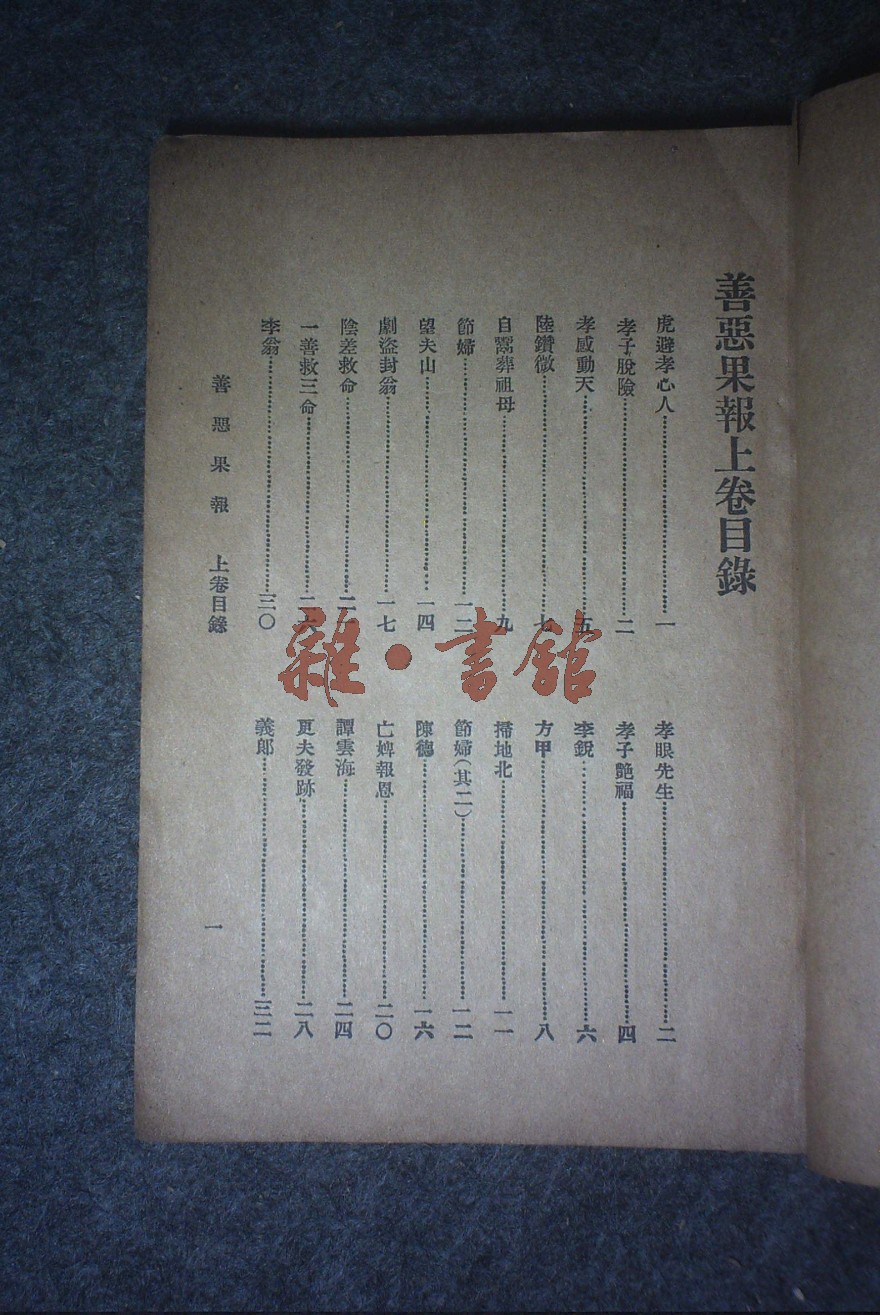 善惡果報上卷目錄
虎避孝心人⋯⋯一
孝眼先生⋯⋯二
孝子脫險⋯⋯二
孝子艶福⋯⋯四
孝感動天⋯⋯五
李銳⋯⋯六
陸鑽徵⋯⋯七
方甲⋯⋯八
自鬻葬祖母⋯⋯九
掃地北⋯⋯一一
節婦⋯⋯一二
節婦(其二)⋯⋯一二
望夫山⋯⋯一四
陳德⋯⋯一六
劇盜封翁⋯⋯一七
亡婢報恩⋯⋯二〇
陰差救命⋯⋯二
譚雲海⋯⋯二四
一善救三命⋯⋯二六
更夫發跡⋯⋯二八
李翁⋯⋯三〇
義郎⋯⋯三二
善惡果報 上卷目錄 一
雜·書館